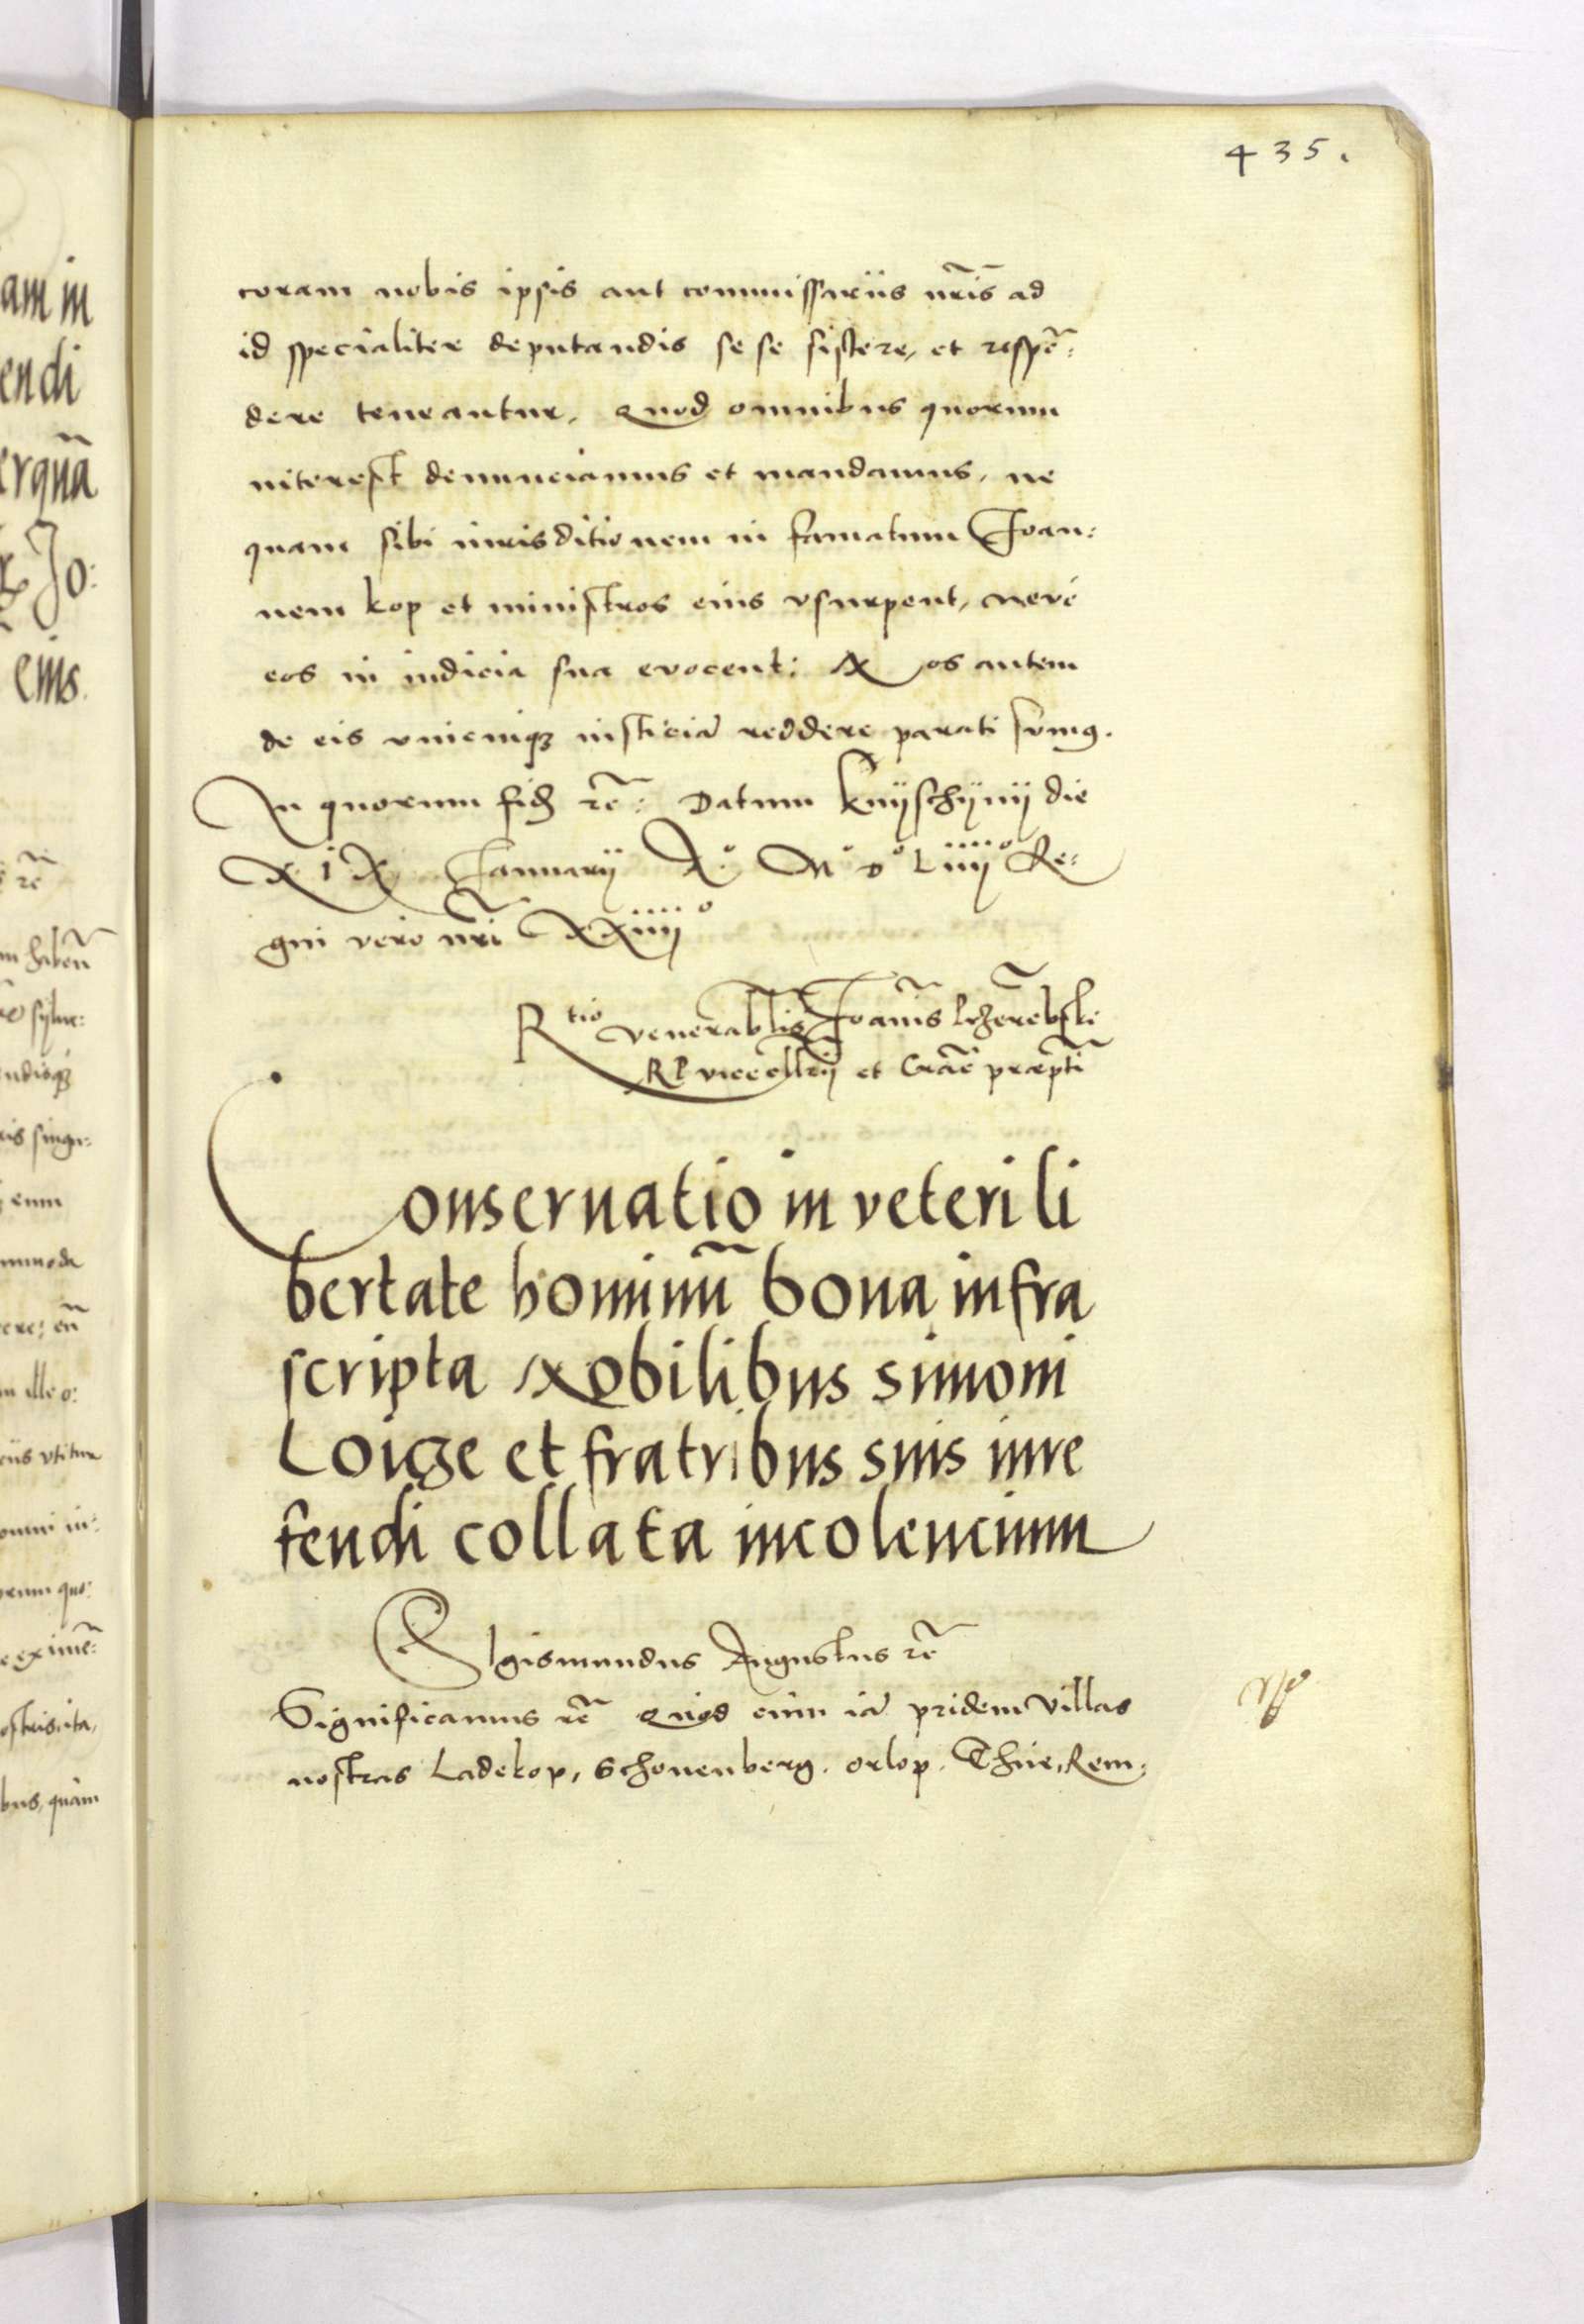 435.
coram nobis ipsis aut commissariis nr̃is ad
id specialiter deputandis se se sistere, et respõ:
dere teneantur, Quod omnibus quorum
interest denunciamus et mandamus, ne
quam sibi iurisditionem in famatum Joan:
nem kop et ministros eius vsurpent, neve
eos in iudicia sua evocent: Nos autem
de eis vnicuiqȝ iusticiã reddere parati sumꝯ.
In quorum fidē rẽ: Datum Knÿschÿnÿ die
XIX Januarij Aº Mº Dº Liiijº Re:
gni vero nr̃i XXiiijº
Rtio venerablis Joañis
RP vicecellrij et Crãĉ præptĩ
Conseruatio in veteri li
bertate hominũ bona infra
scripta Nobilibus simoni
Loicze et fratribus suis iure
feudi collata incolencium
Sigismundus Augustus rẽ
Significamus rẽ Quod cum iã pridem villas
nostras Ladekop, Schonenberg. orlop. Thiie, Rem:
am in
endi
erquã
Jo:
eius.
rẽ
habeñ
ndisqȝ
ris singu:
eum
mmoda
ere: eñ
m ille o:
ciis vtitur
omni in:
orum quo:
e eximẽ:
ostris, ita,
bus, quàm